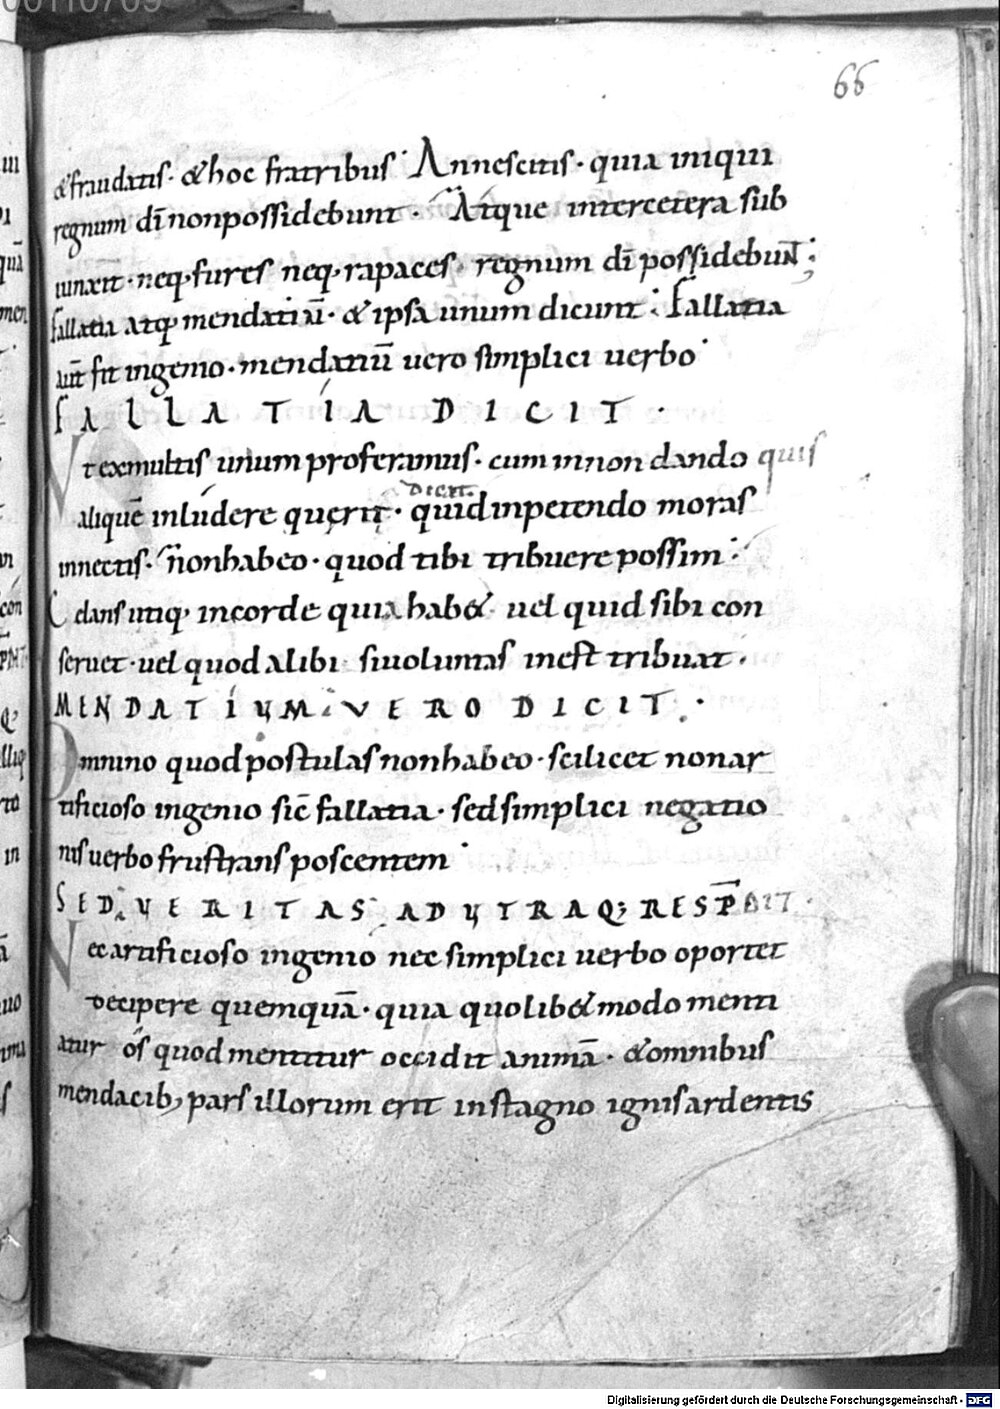 66
& fraudatis · & hoc fratribus · An nescitis · quia iniqui
regnum dī non possidebunt · Atque inter cetera sub
iunxit · neq· fures neq· rapaces · regnum dī possidebunt ;
fallatia atq· mendatiū · & ipsa unum dicunt · fallatia
aut̄ fit ingenio · mendatiū uero simplici uerbo ·
FALLATIA DICIT ·
Vt ex multis unum proferamus · cum in non dando quis
aliquē inludere querit · dicit quid in petendo moras
innectis · non habeo · quod tibi tribuere possim ·
Cdans utiq· in corde quia hab& uel quid sibi con
seruet · uel quod alibi si uoluntas inest tribuat ·
MENDATIUM · VERO DICIT ·
Omnino quod postulas non habeo · scilicet non ar
tificioso ingenio sic̄ fallatia · sed simplici negatio
nis uerbo frustrans poscentem ·
SED VERITAS AD UTRAQ; RESP̄DIT ·
Nec artificioso ingenio nec simplici uerbo oportet
decipere quemquā · quia quolib& modo menti
atur os quod mentitur occidit animā · & omnibus
mendacib; pars illorum erit in stagno ignis ardentis
Digitalisierung gefördert durch die Deutsche Forschungsgemeinschaft - DFG